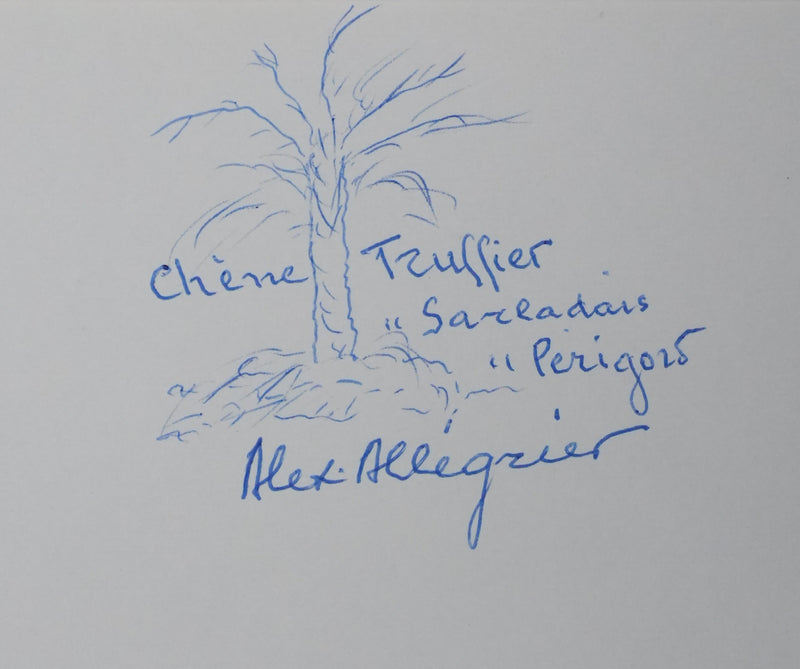 Chène Truffier
" Sarladais
" Périgord
Alex. Allégrier